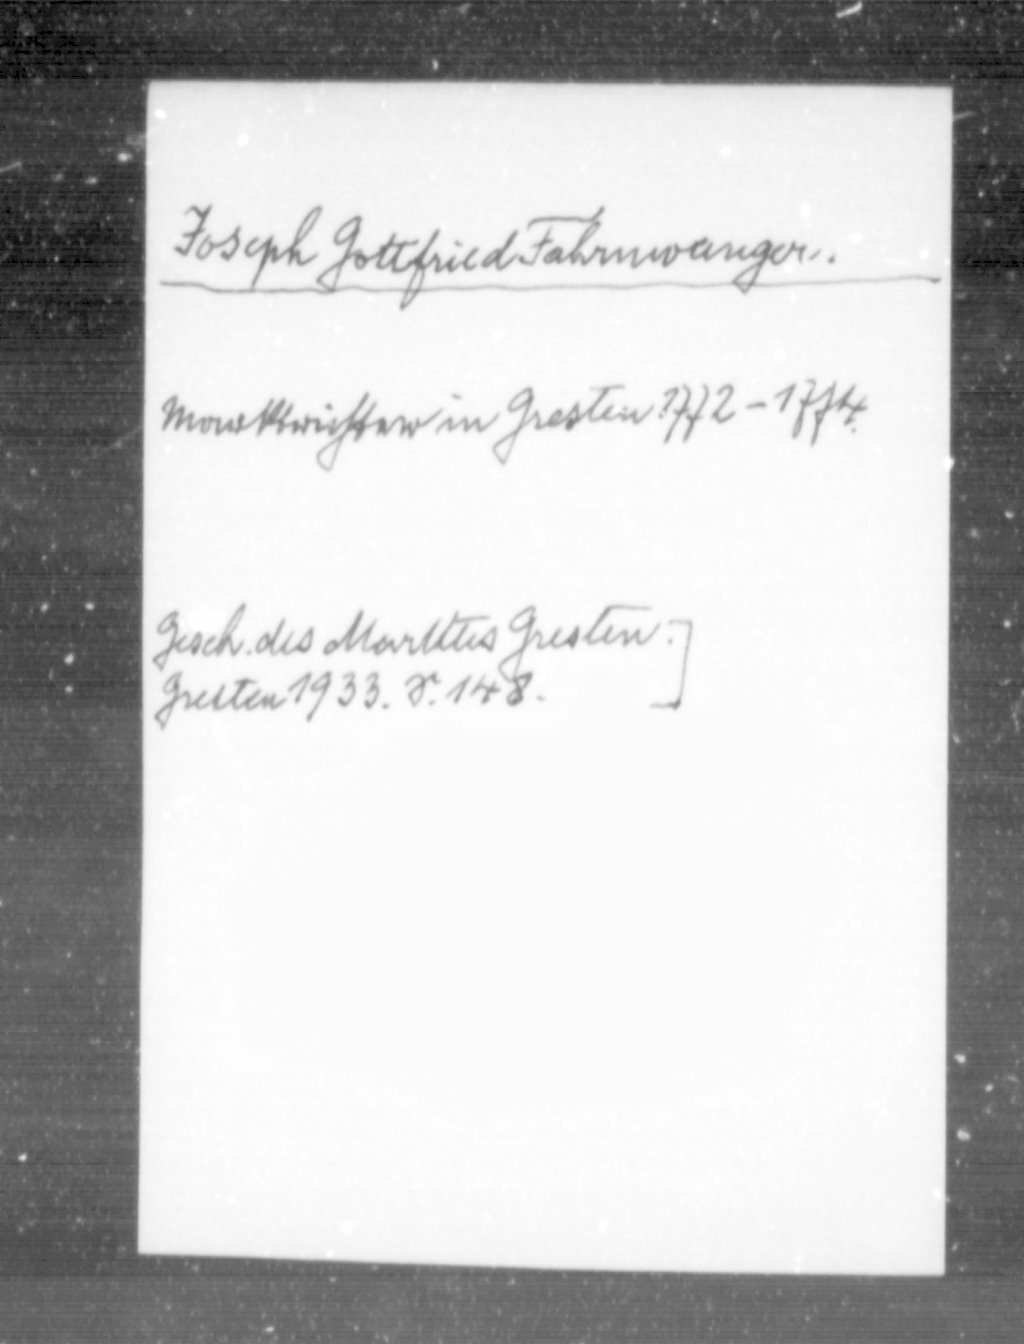 Joseph Gottfried Fahrnwanger.
Marktrichter in Gresten 1772 - 1774.
Gesch. des Marktes Gresten.]
Gresten 1933. S. 148.